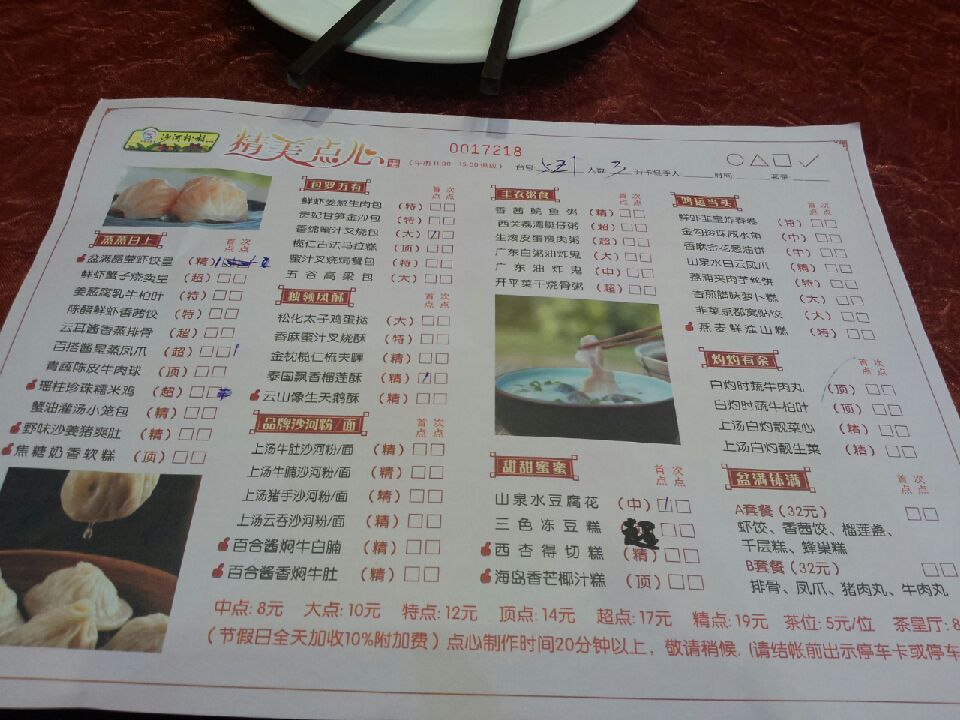 沙河粉村
精美点心
0017218
台号 人数 3 打卡经手人 时间: 茗茶:
○△□✓
蒸蒸日上 首点 次点
盆满晶莹虾饺皇 (精)
鲜虾蟹子烧卖皇 (超)
姜葱腐乳牛柏叶 (特)
陈醋鲜虾香茜饺 (特)
云耳酱香蒸排骨 (超)
百搭酱皇蒸凤爪 (超)
青蔬陈皮牛肉球 (顶)
瑶柱珍珠糯米鸡 (超)
蟹油灌汤小笼包 (精)
野味沙姜猪爽肚 (精)
焦糖奶香软糕 (顶)
包罗万有 首点 次点
鲜虾姜葱生肉包 (特)
贵妃甘笋金沙包 (特)
香绵蜜汁叉烧包 (大)
榄仁古法马拉糕 (顶)
蜜汁叉烧焗餐包 (特)
五谷高粱包 (大)
独领风酥 首点 次点
松化太子鸡蛋挞 (大)
香麻蜜汁叉烧酥 (特)
金枕榄仁梳夫喱 (精)
泰国飘香榴莲酥 (精)
云山像生天鹅酥 (精)
品牌沙河粉/面 首点 次点
上汤牛肚沙河粉/面 (精)
上汤牛腩沙河粉/面 (精)
上汤猪手沙河粉/面 (精)
上汤云吞沙河粉/面 (精)
百合酱焖牛白腩 (精)
百合酱香焖牛肚 (精)
丰衣粥食 首点 次点
香茜鲩鱼粥 (精)
西关荔湾艇仔粥 (超)
生滚皮蛋瘦肉粥 (超)
广东白粥油炸鬼 (大)
广东油炸鬼 (中)
开平菜干烧骨粥 (超)
甜甜蜜蜜 首点 次点
山泉水豆腐花 (中)
三色冻豆糕 超
西杏得切糕 (精)
海岛香芒椰汁糕 (顶)
鸿运当头 首点 次点
鲜虾韭皇炸春卷 (特)
金沟珍珠咸水角 (中)
香麻杏花葱油饼 (中)
山泉水白云凤爪 (精)
荔浦夹肉芋丝饼 (特)
香煎腊味萝卜糕 (大)
韭菜京都窝贴饺 (大)
燕麦鲜淮山糕 (特)
灼灼有余 首点 次点
白灼时蔬牛肉丸 (顶)
白灼时蔬牛柏叶 (顶)
上汤白灼靓菜心 (精)
上汤白灼靓生菜 (精)
盆满钵满 首点 次点
A套餐(32元)
虾饺、香茜饺、榴莲盏、
千层糕、蜂巢糕
B套餐(32元)
排骨、凤爪、猪肉丸、牛肉丸
中点: 8元 大点: 10元 特点: 12元 顶点: 14元 超点: 17元 精点: 19元 茶位: 5元/位 茶皇厅: 8
(节假日全天加收10%附加费) 点心制作时间20分钟以上, 敬请稍候. (请结帐前出示停车卡或停车